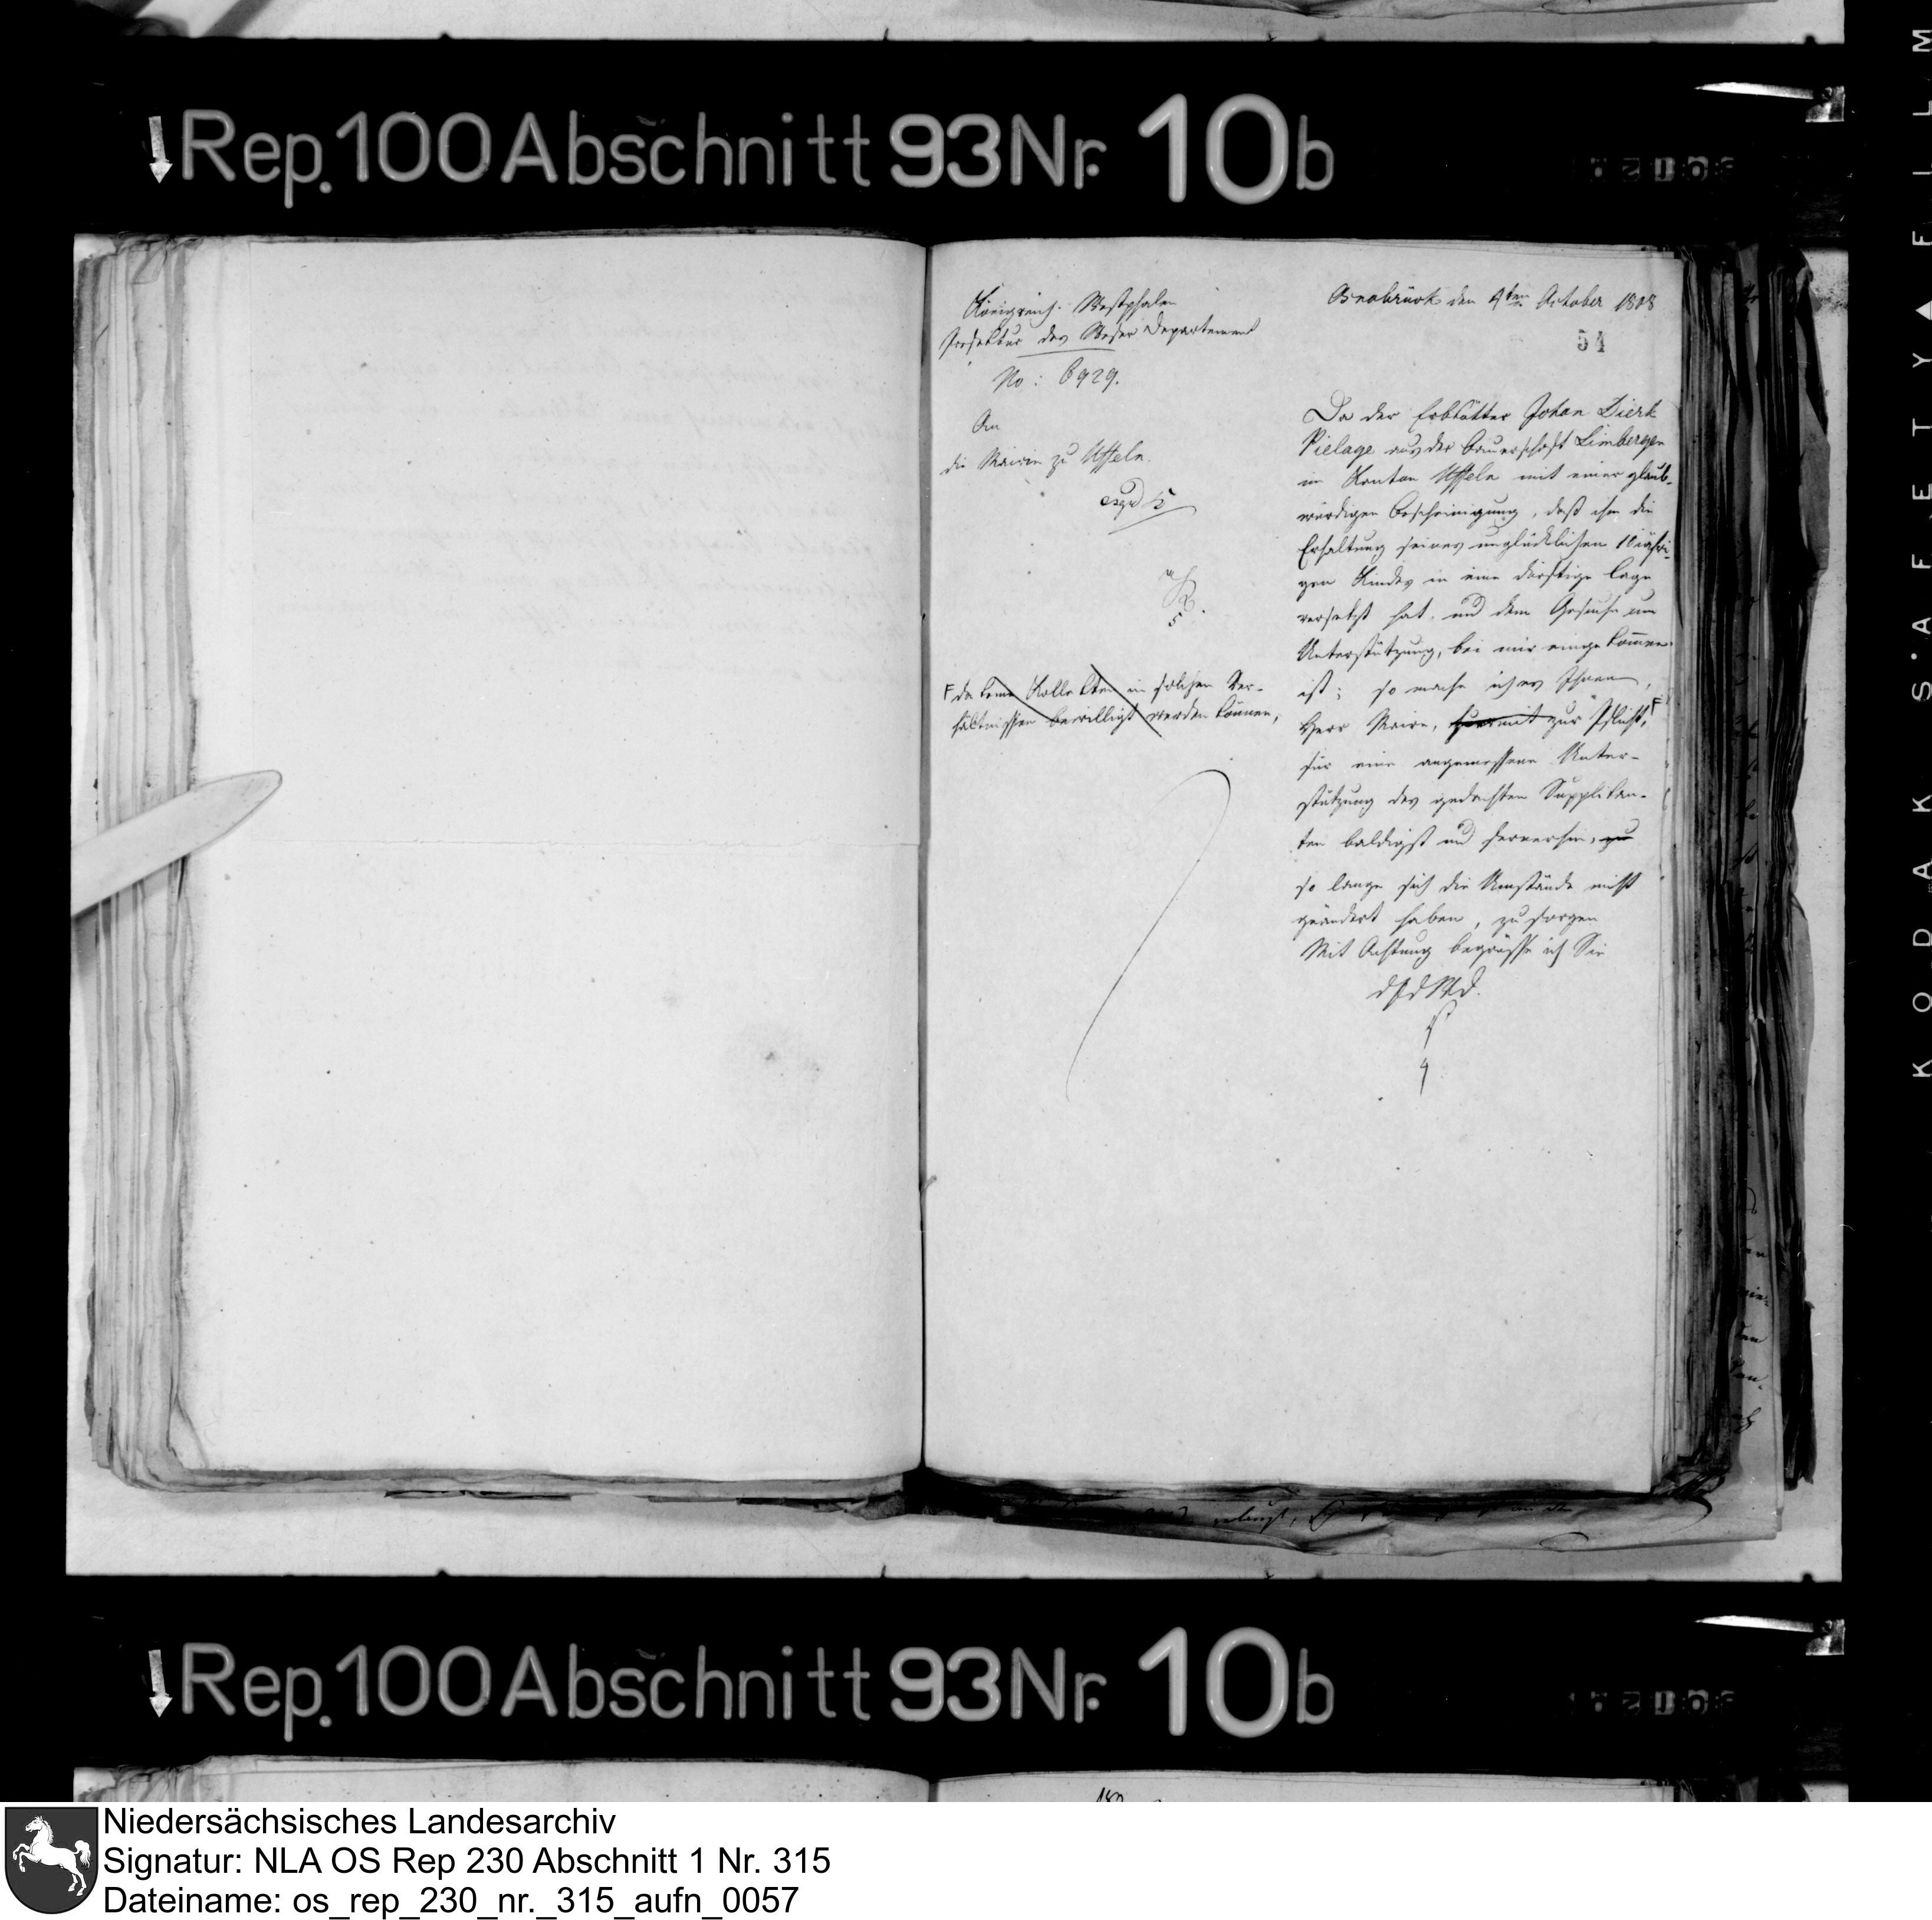 Rep. 100 Abschnitt 93 Nr. 10b
Königreich Westphalen
Präfektur des Weser Departement
No: 6929.
An
die Mairie zu Uffeln.
expd 5
5.
F da keine Kollekten in solchen Ver-
hältnissen bewilligt werden können,
Osnabrück den 4ten October 1808
54
Da der Erbkötter Johan Dierk
Pielage aus der Bauerschaft Limbergen
im Kanton Uffeln mit einer glaub-
würdigen Bescheinigung, daß ihn die
Erhaltung seines unglücklichen 10 jähri-
gen Kindes in eine dürftige Lage
versetzt hat, und dem Gesuche um
Unterstützung, bei mir eingekommen
ist; so mache ich es Ihnen,
Herr Maire, hiermit zur Pflicht, F
für eine angemessene Unter-
stützung des gedachten Supplikan-
ten baldigst und fernerhin, zu
so lange sich die Umstände nicht
geändert haben, zu sorgen
Mit Achtung begrüsse ich Sie
d P d W D.
4
Rep. 100 Abschnitt 93 Nr. 10b
KODAK SAFETY ▲ FILM
Niedersächsisches Landesarchiv
Signatur: NLA OS Rep 230 Abschnitt 1 Nr. 315
Dateiname: os_rep_230_nr._315_aufn_0057